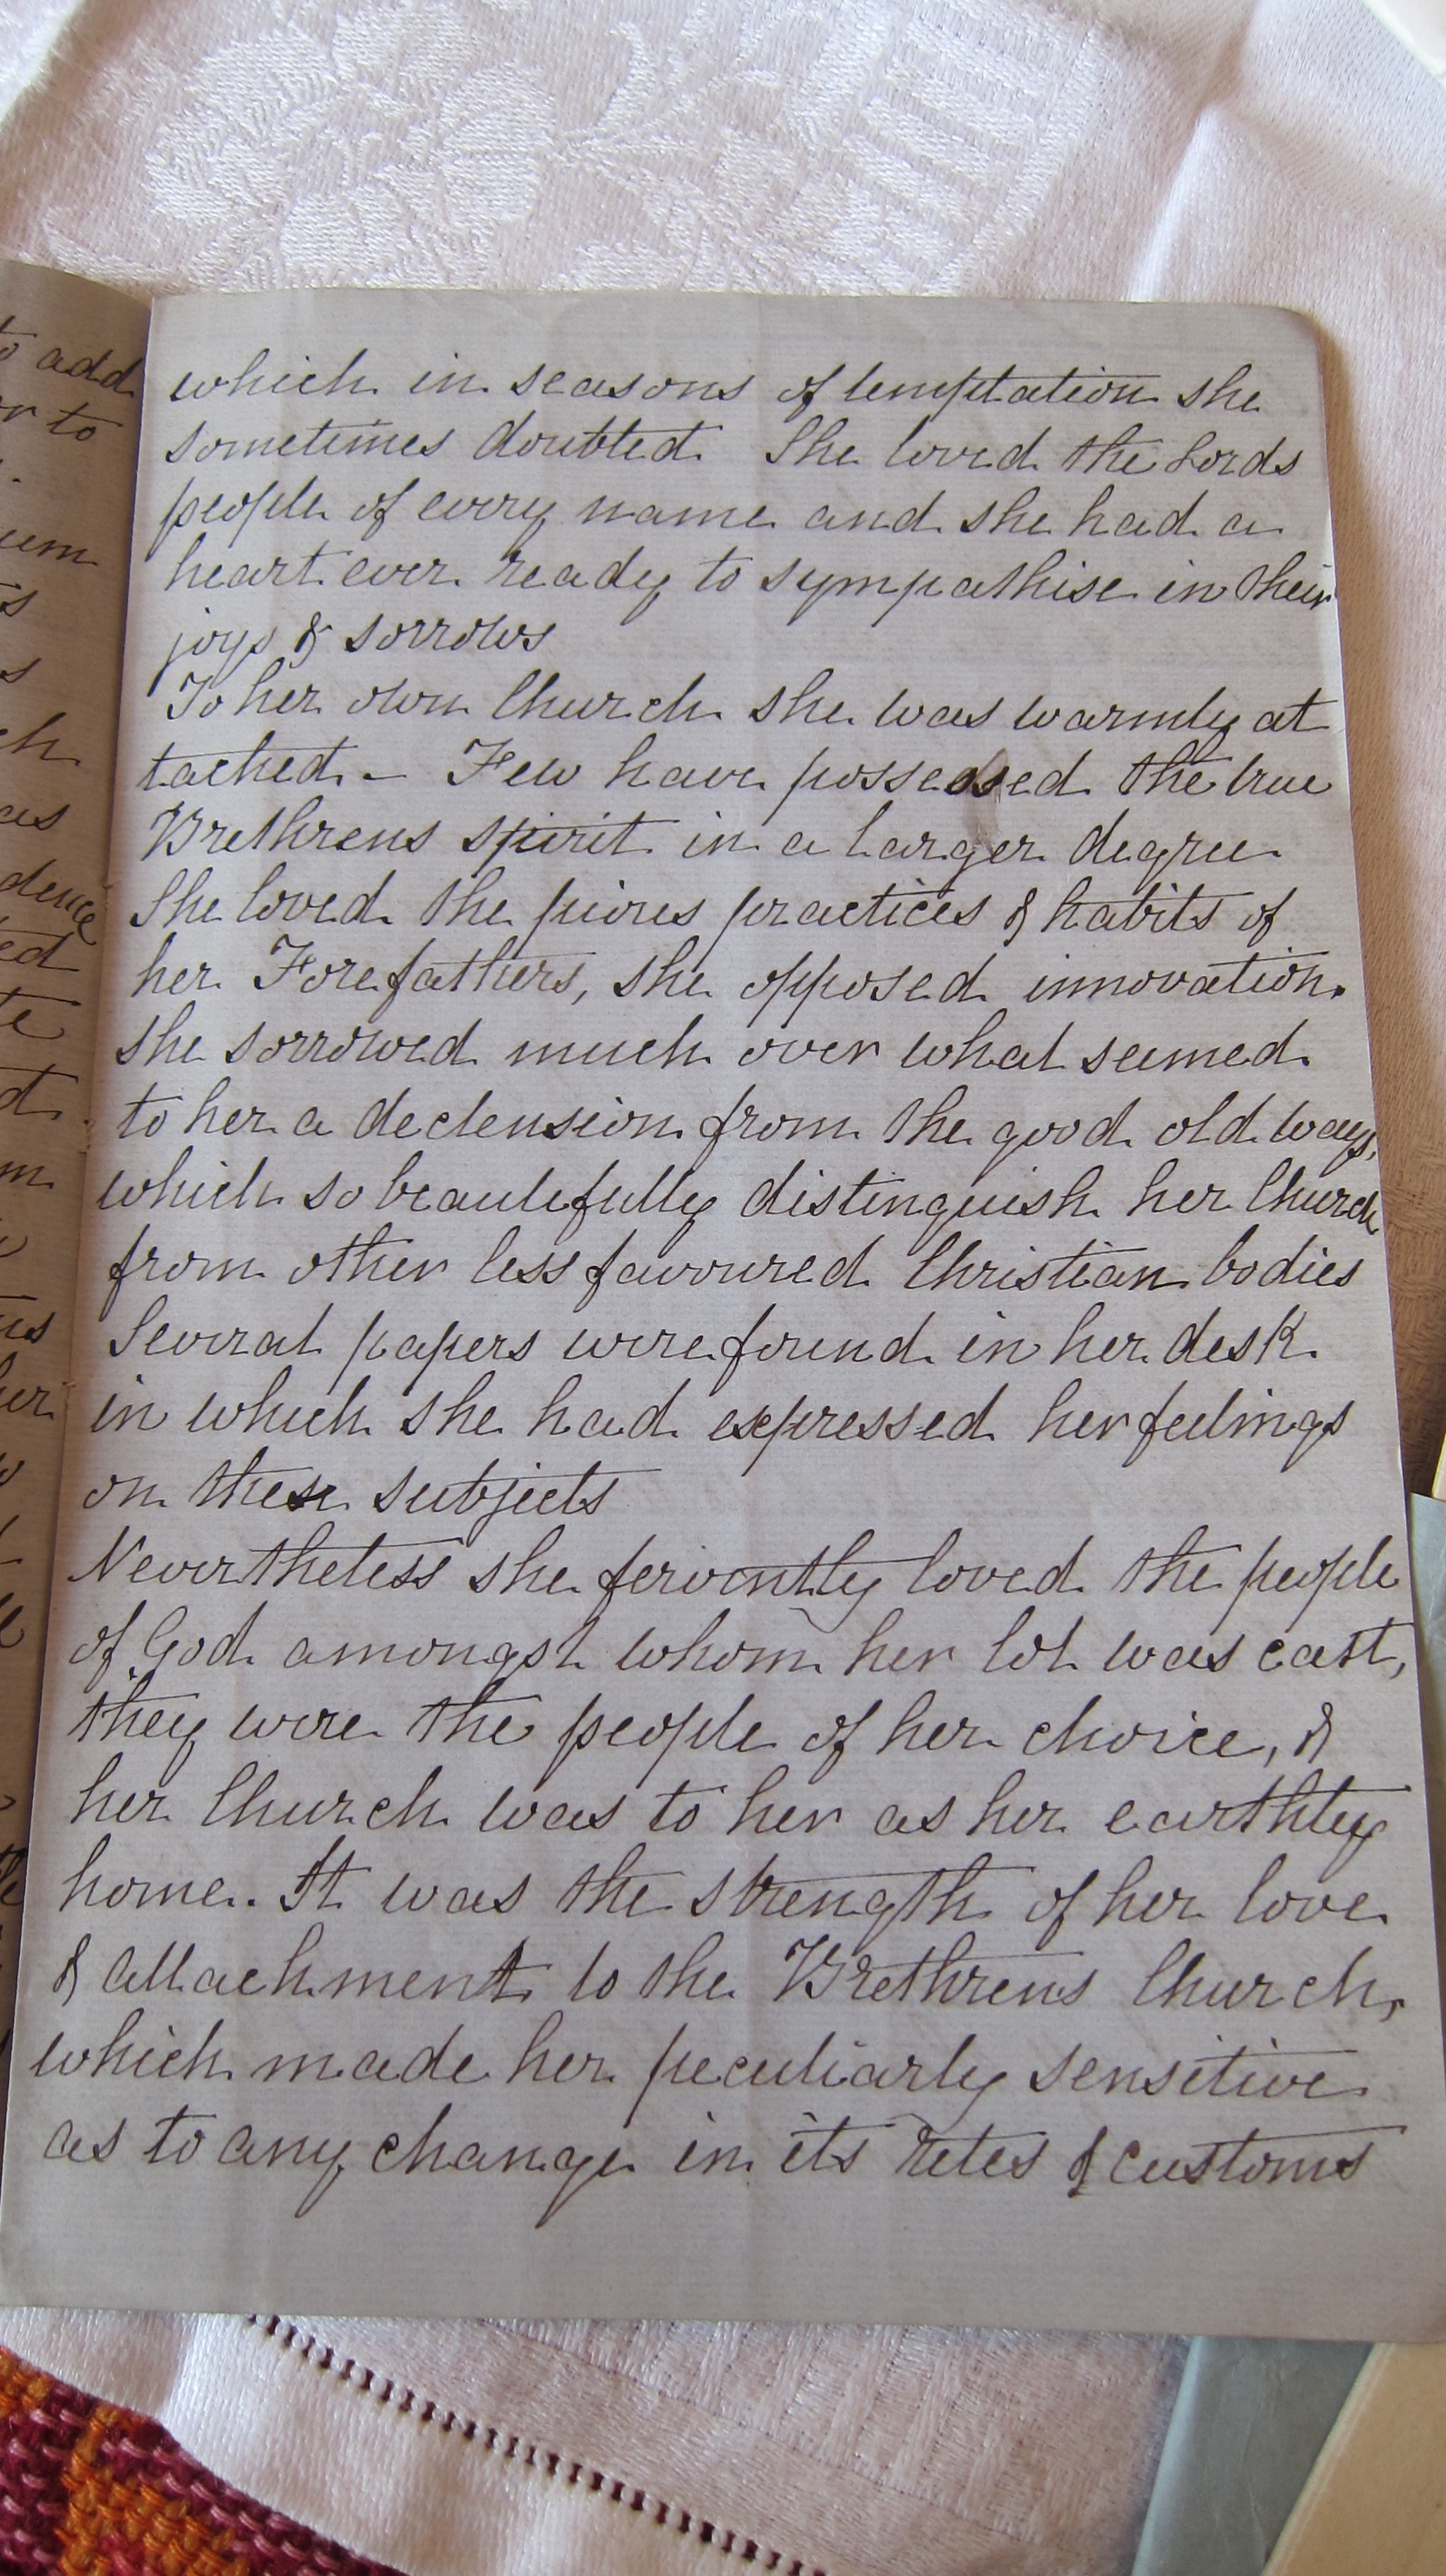 to add
or to
um
s
s
ch
as
dence
ed
te
d.
m
us
her
which in seasons of temptation she
sometimes doubted. She loved the Lords
people of every name and she had a
heart ever ready to sympathise in their
joys & sorrows
To her own Church she was warmly at
tached. – Few have possessed the true
Brethrens spirit in a larger degree
She loved the pious practices & habits of
her Forefathers, she opposed innovation.
she sorrowed much over what seemed
to her a declension from the good old ways,
which so beautifully distinguish her Church
from other less favoured Christian bodies
Several papers were found in her desk
in which she had expressed her feelings
on these subjects
Nevertheless she fervently loved the people
of God amongst whom her lot was cast,
they were the people of her choice, &
her Church was to her as her earthly
home. It was the strength of her love
& attachment to the Brethrens Church,
which made her peculiarly sensitive
as to any change in its rites & customs